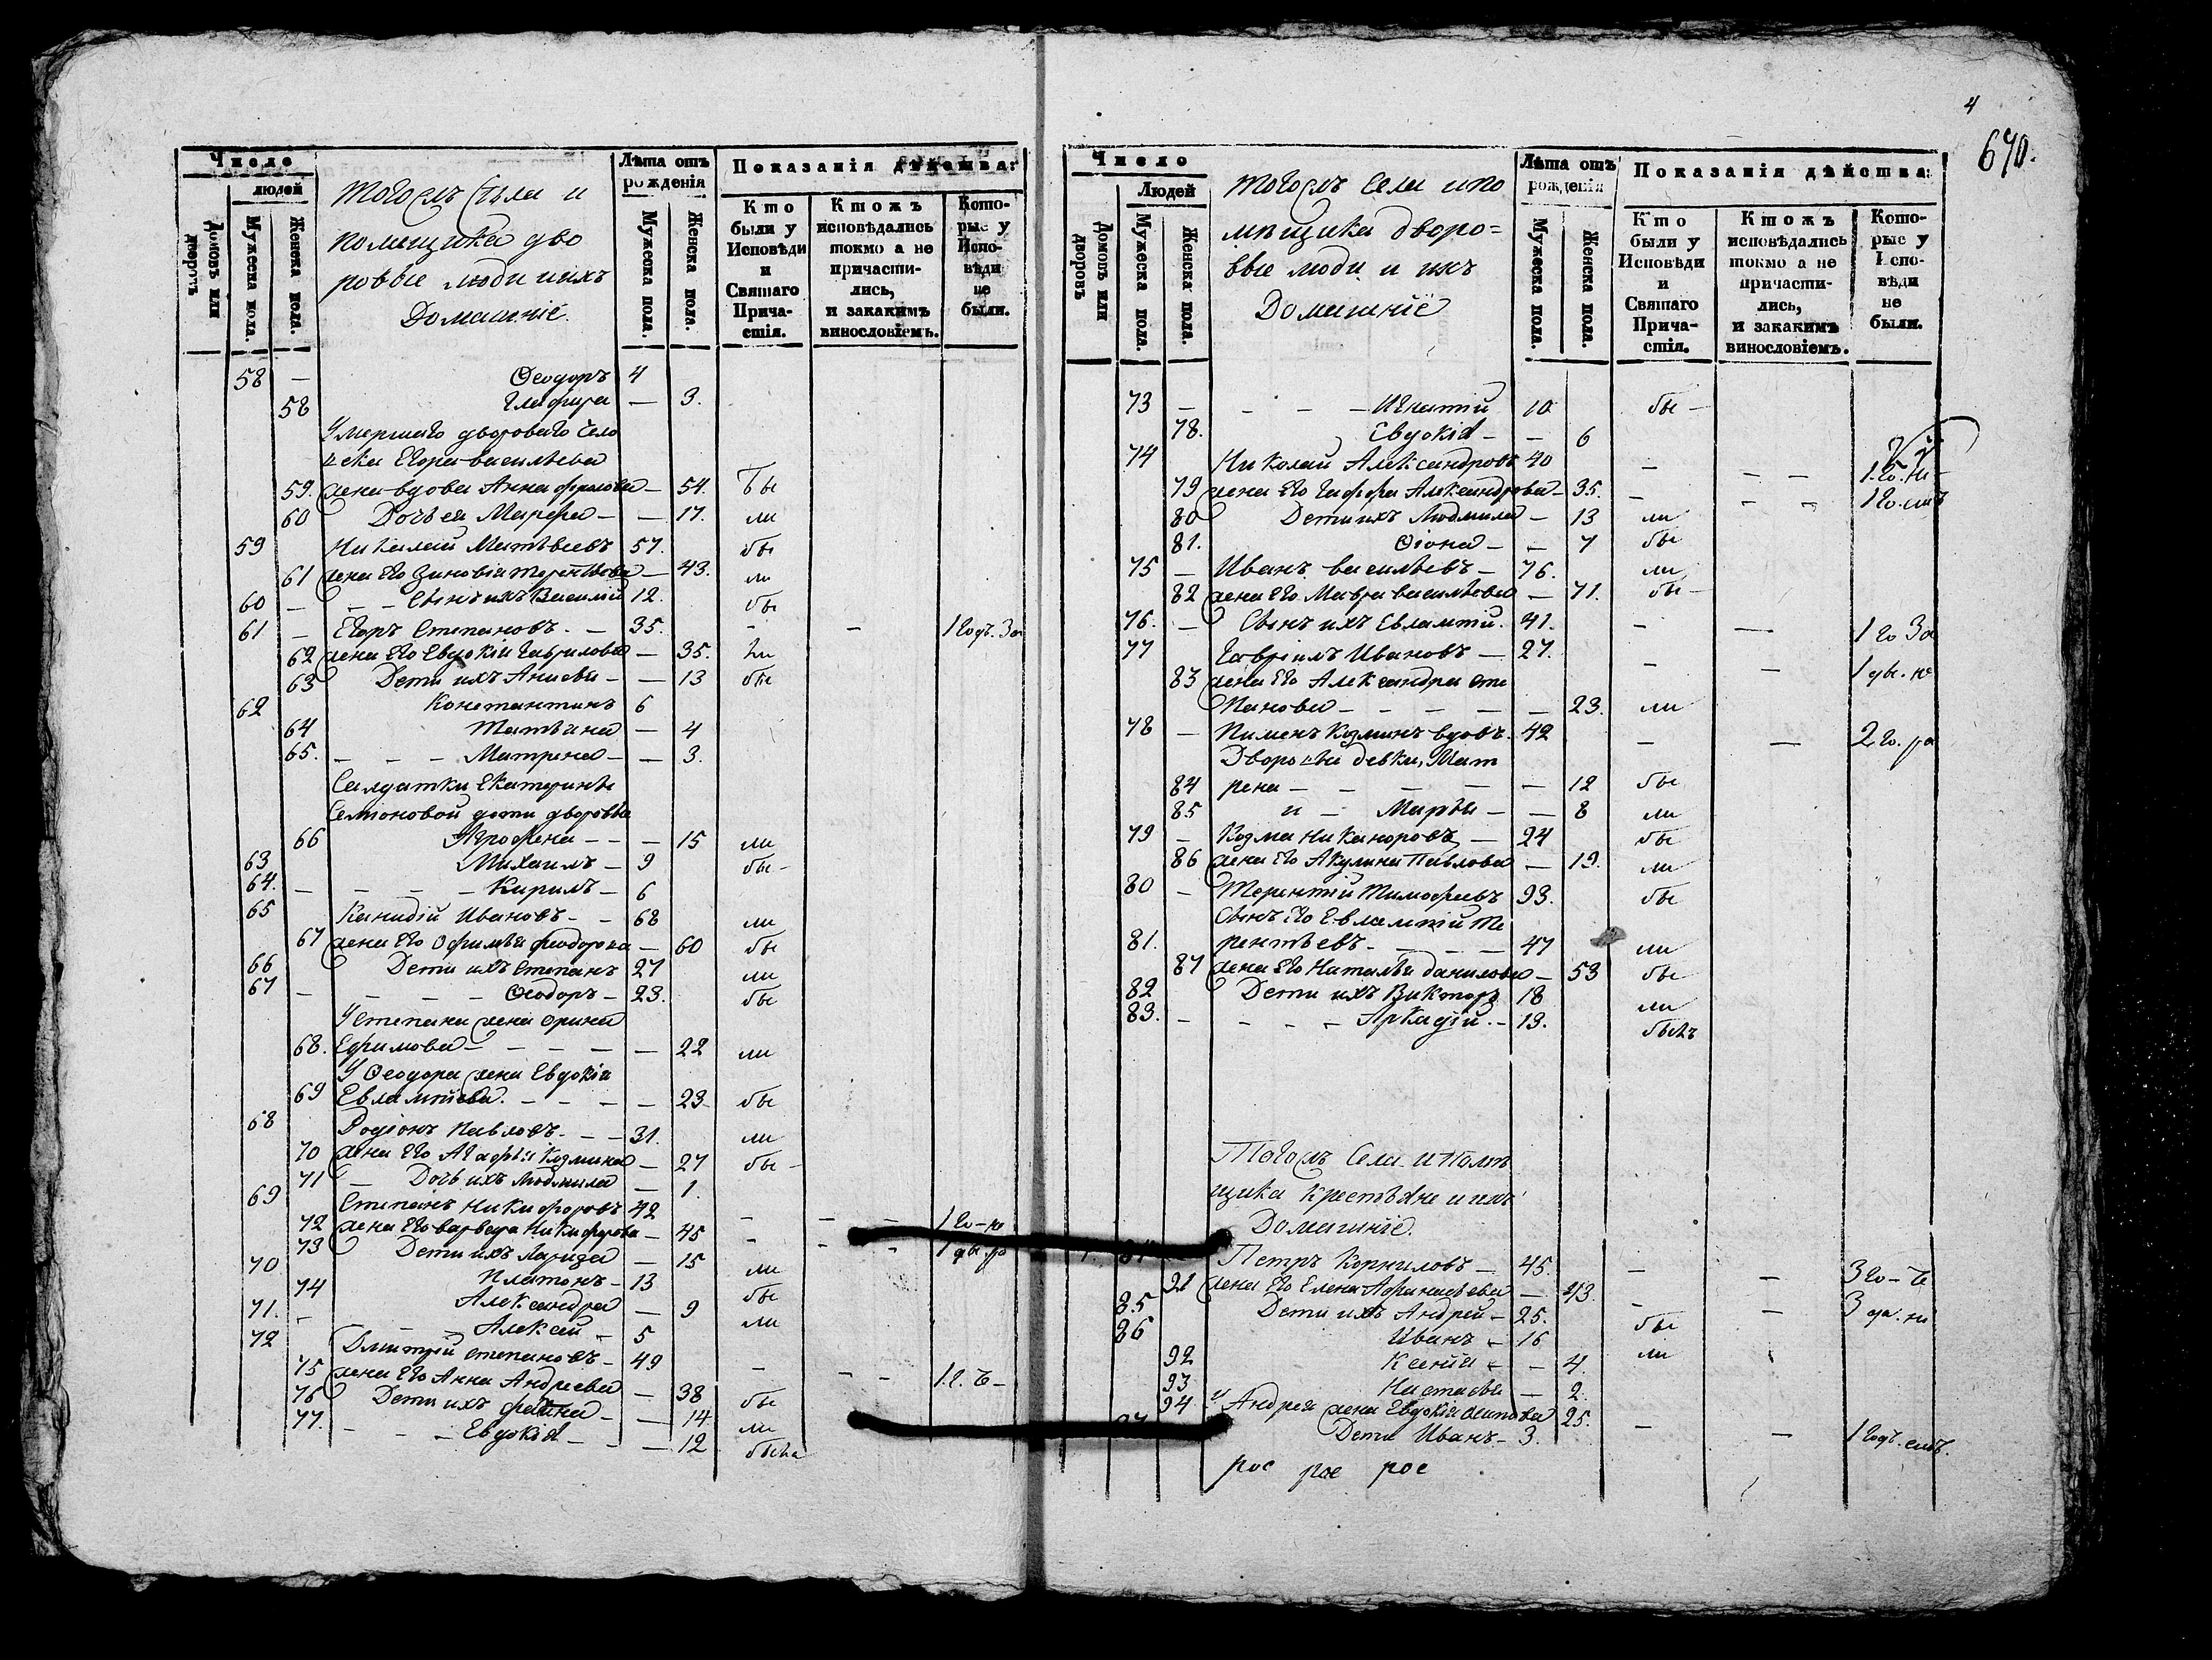 Число
людей
Домовъ или дворовъ
Мужеска пола.
Женска пола.
тогожъ села и
помещика дво
ровые люди и ихъ
Домашніе.
Лѣта отъ рожденія
Мужеска пола.
Женска пола.
Показанія дѣйства:
Кто были у Исповѣди и Святаго Причастія.
Ктожъ исповѣдались токмо а не причастились, и закакимъ винословіемъ.
Которые у Исповѣди не были.
58 — Ѳеодоръ 4
58 Глафира — 3.
Умершаго дворового чело
века Егора васильева
59. жена вдова Анна фролова — 54. бы
60 Дочь ея Марфа — — 17. ли
59 Николай Матвѣевъ 57. бы
61 жена его Зиновia — 43. ли
60 — — — Сынъ ихъ Василій 12. бы
61 — Егоръ Степановъ. — 35. — — 1 годъ. За
62 жена его Евдокіа Гаврилова — 35. ли
63 Дети ихъ — — 13 бы
62 Константинъ 6
64 Татьяна — 4
65. — — — Матрена — — 3.
Салдатки Екатерины
Семіоновой дети дворовые
66 Агрофена — — — 15 ли
63 Михаилъ — 9 бы —
64. — — — — Кирилъ — 6
65 Иванов — — 68 ли
67 жена его Офимья феодорова — 60 бы
66 Дети ихъ Степанъ 27 ли
67 — — — — Ѳеодоръ — 23. бы
У Степана жена Орина
68. Ефимова — — — — — — 22 ли
У Ѳеодора жена Евдокіа
69 Евлампіева. — — — — — 23 бы
68 Родіонъ Павловъ. — — 31. ли
70 жена его Агафья Козмина — 27 бы —
71 — Дочь ихъ Людмила — 1.
69 Степанъ Никифоровъ 42 — — — 1 го — не
72 жена его варвара Никифорова — 45 — — — 1 ды. ра
73 Дети ихъ Лариса — 15 ли
70 Платонъ — 13 бы
74 Александра — 9 ли
71. — — Алексей — 5
72 Дмитрій степановъ — 49 — — — 1. г. б —
75 жена его Анна Андреева — 38 бы
76 Дети ихъ фаина — — 14 ли
77. — — — Евдокіа — — — 12 была
4
670.
Число
Людей
Домовъ или дворовъ
Мужеска пола.
Женска пола.
тогожъ села и по
мѣщика дворо=
вые люди и ихъ
Домашніе
Лѣта отъ рожденія
Мужеска пола.
Женска пола.
Показанія дѣйства:
Кто были у Исповѣди и Святаго Причастія.
Ктожъ исповѣдались токмо а не причастились, и закакимъ винословіемъ.
Которые у Исповѣди не были.
73 — — — — Игнатій 10 бы —
78. Евдокіа — — 6
74 Николай Александровъ 40 — — — 1. го. ни —
79 жена его Александрова — 35. — — — 1 го.
80 Дети ихъ Людмила — 13 ли
81. Ѳіона — — 7 бы
75 — Иванъ васильевъ — 76. ли
82 жена его Мавра васильева — 71. бы —
76. — Сынъ ихъ Евлампій. 41. — — 1 го За
77 Гавріилъ Ивановъ — 27. — — 1 ды. не
83 жена его Александра сте
панова — — — — — 23. ли
78 — Пименъ Козминъ вдовъ. 42 — — 2. го. ра
Дворовые девки, Мат
84 рена — — — — — 12 бы
85 и — Марья — — 8 ли
79 — Козма Никаноровъ — 24 бы
86 жена его Акулина Павлова — 19. ли
80 — Терентій Тимофеевъ 93. бы
Сынъ его Евлампій Те
81. рентьевъ — — — — 47 ли
87 жена его Наталья данилова — 53 бы
82 Дети ихъ Викторъ 18 ли
83. — — — — Аркадій. — 13. былъ
Тогожъ Села и Помѣ
щика Крестьяне и ихъ
Домашніе.
Петръ Корниловъ — 45. — — 3 го — б
91 жена его Елена Афанасьева — 43. — — 3 ра. ни
85 Дети ихъ Андрей — 25. бы
86 Иванъ — 16 ли
92 Ксенія — — 4.
93 Настасья — 2.
94 у Андрея жена Евдокіа осипова 25. — — 1 годъ.
Дети Иванъ — 3.
рос рос рос